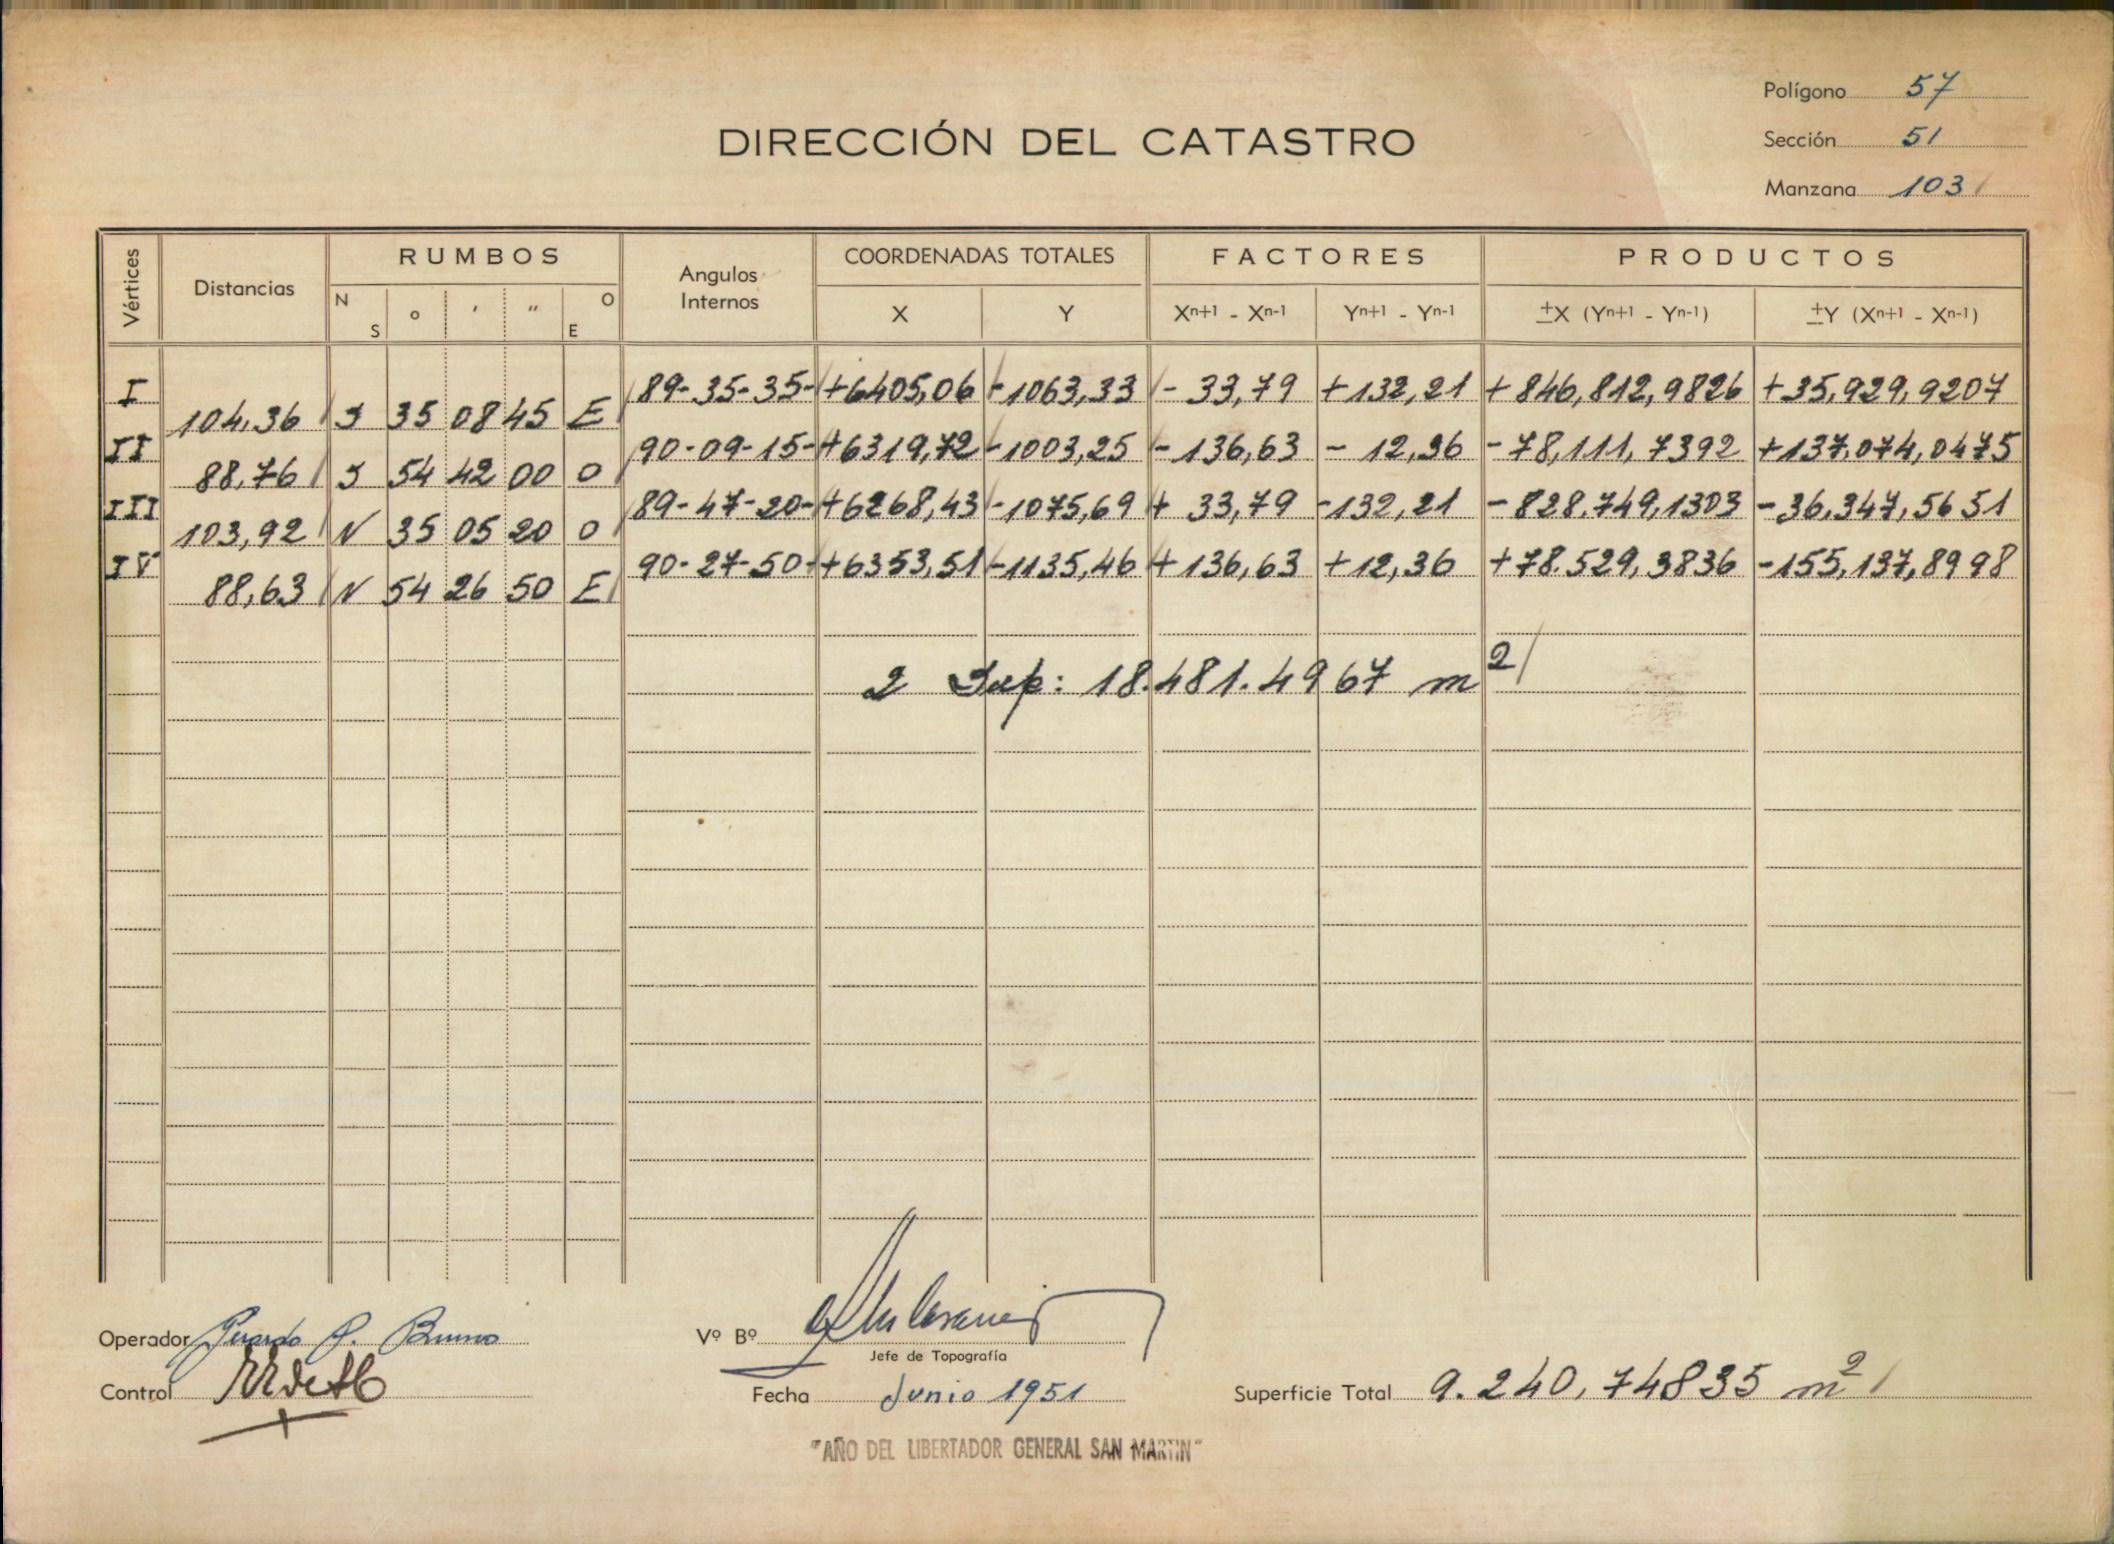 Polígono 57
DIRECCIÓN DEL CATASTRO
Sección 51
Manzana 103
Vértices Distancias RUMBOS Angulos Internos COORDENADAS TOTALES FACTORES PRODUCTOS
N S ° ' " O E X Y Xn+1 - Xn-1 Yn+1 - Yn-1 ±X (Yn+1 - Yn-1) ±Y (Xn+1 - Xn-1)
I 89-35-35- +6405,06 -1063,33 - 33,79 +132,21 +846,812,9826 +35,929,9207
104,36 S 35 08 45 E
II 90-09-15- +6319,72 -1003,25 -136,63 - 12,36 -78,111,7392 +137,074,0475
88,76 S 54 42 00 O
III 89-47-20- +6268,43 -1075,69 + 33,79 -132,21 -828.749,1303 -36,347,5651
103,92 N 35 05 20 O
IV 90-27-50- +6353,51 -1135,46 +136,63 +12,36 +78.529,3836 -155,137,8998
88,63 N 54 26 50 E
2 Sup: 18.481.4967 m2
Operador Gerardo P. Bruno
Vº Bº
Jefe de Topografía
Control
Fecha Junio 1951
Superficie Total 9.240,74835 m2
"AÑO DEL LIBERTADOR GENERAL SAN MARTIN"